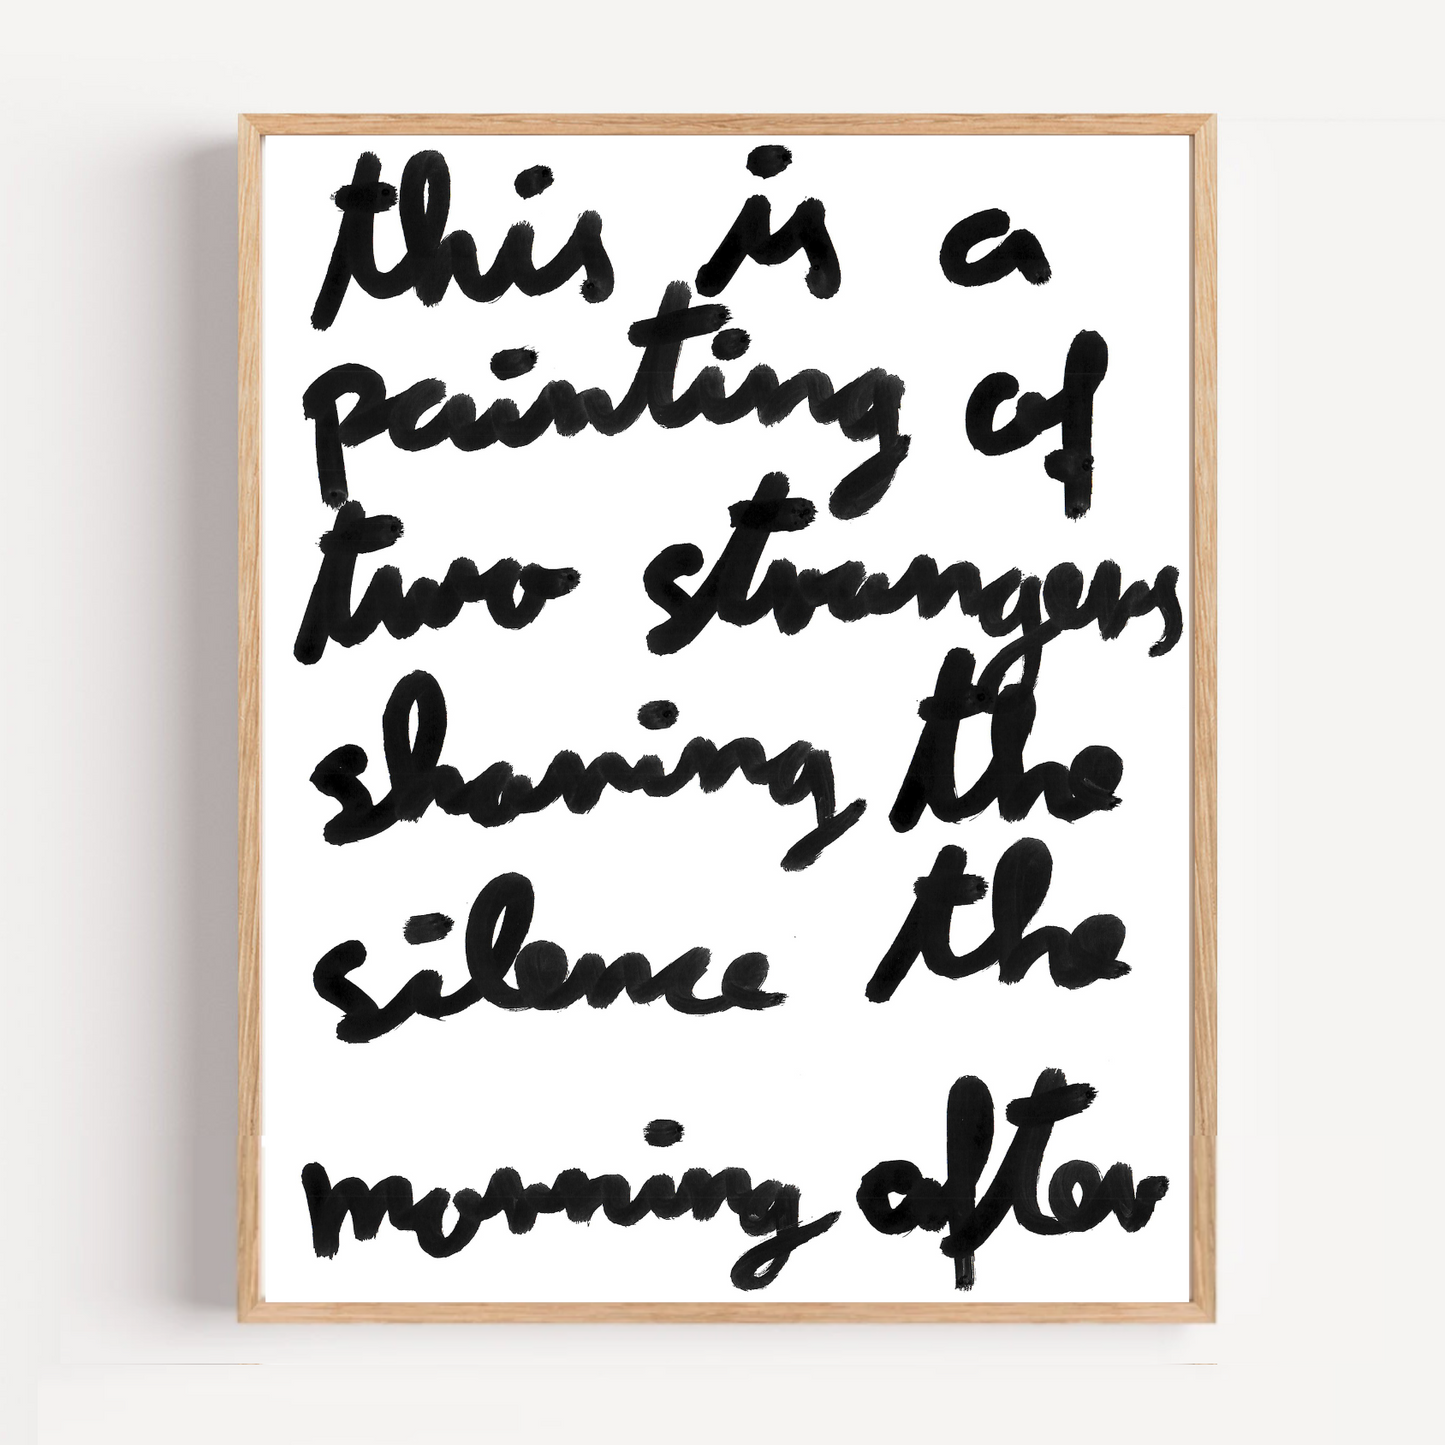 this is a
painting of
two strangers
sharing the
silence the
morning after